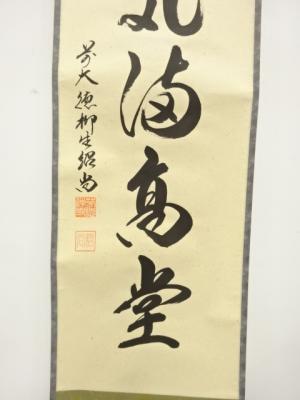 満高堂
前大徳柳生紹尚